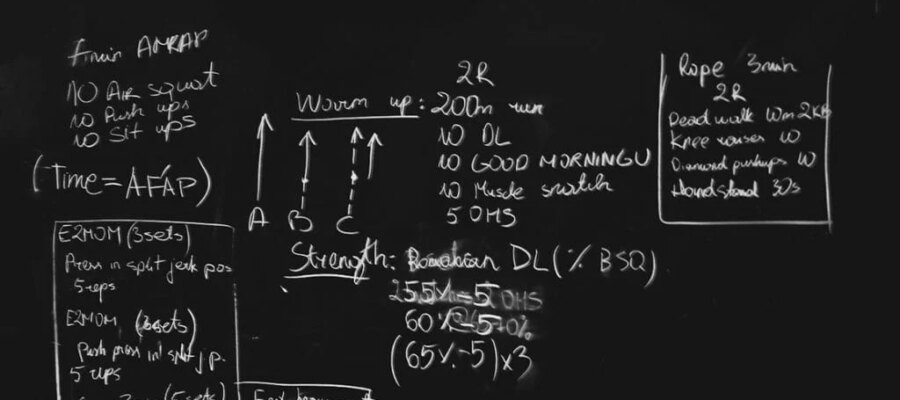 AMRAP
10 AIR squat
10 Push ups
10 Sit ups
(Time=AFAP)
E2MOM (3sets)
Press in split jerk pos
5 reps
E2MOM (3sets)
Push press in split j.p.
5 reps
(5 sets)
A B C
2R
Worm up: 200m run
10 DL
10 GOOD MORNINGU
10 Muscle snatch
5 OHS
Strength: DL (% BSQ)
55%-5 OHS
60%-5 70%
(65%-5)x3
Rope 3min
2R
Dead walk 10m 2KB
Knee raises 10
Diamond pushups 10
Handstand 30s